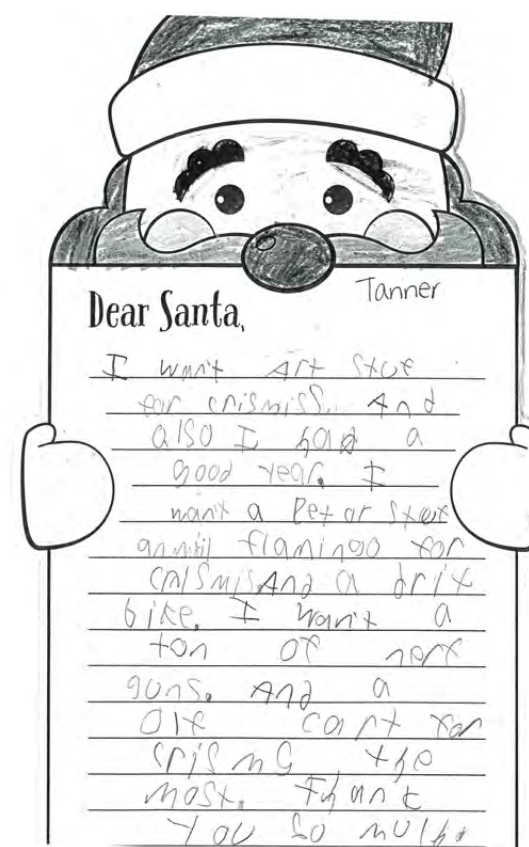 Tanner
Dear Santa,
I want Art stuf
for crismiss. And
also I had a
good year. I
want a Pet or stuf
animil flamingo for
crismis And a drit
bike. I want a
ton of nerf
guns. And a
cart for
the
most. Thank
You so